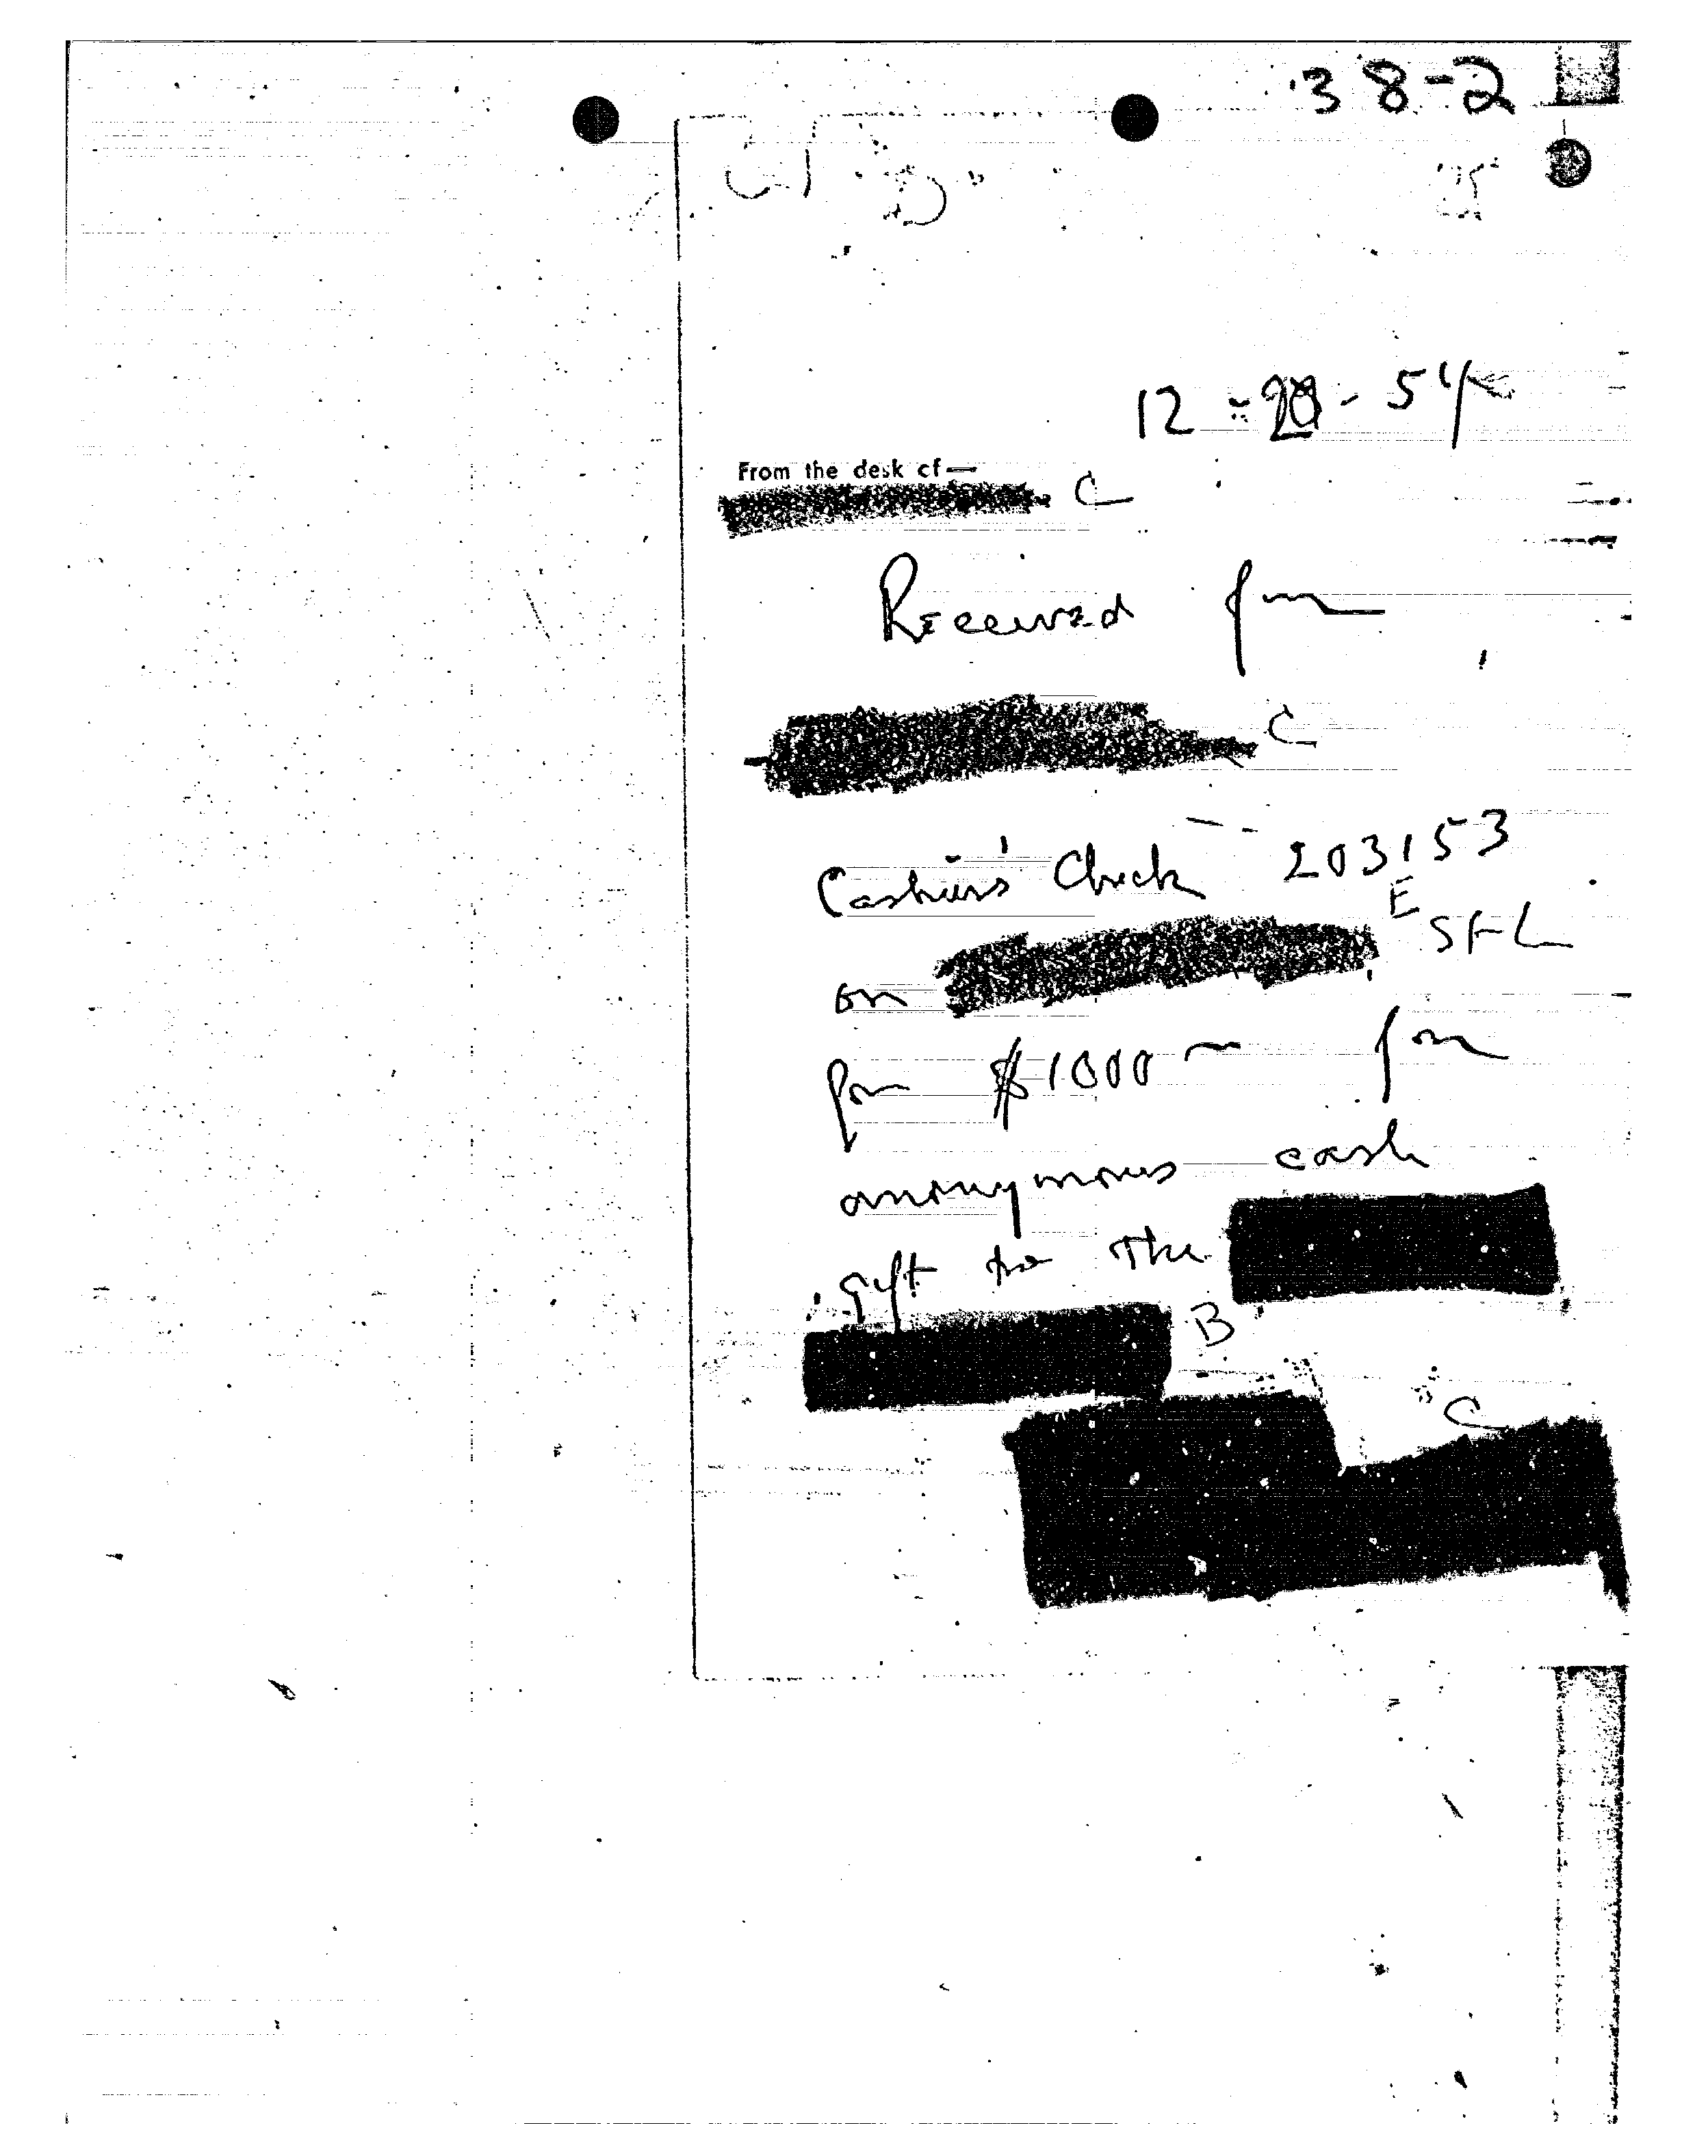 38-2
12 - 20 - 54
From the desk of —
C
Received from
C
Cashiers' Check 203153
E
on SFL
for $1000 — from
anonymous cash
gift to the
B
C